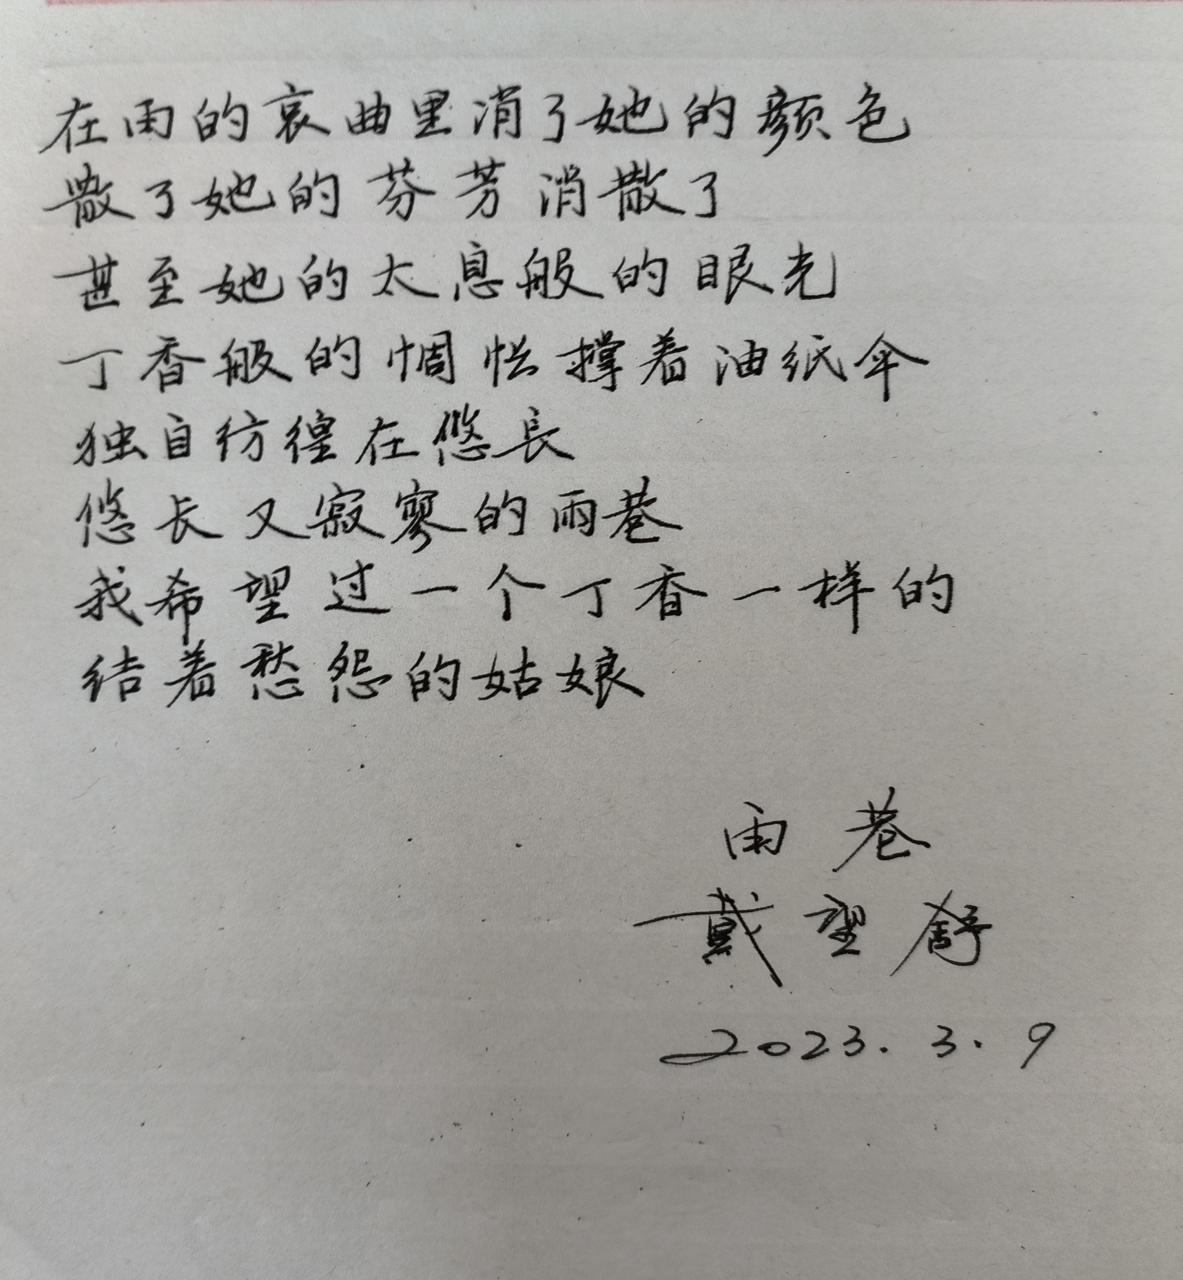 在雨的哀曲里消了她的颜色
散了她的芬芳消散了
甚至她的太息般的眼光
丁香般的惆怅撑着油纸伞
独自彷徨在悠长
悠长又寂寥的雨巷
我希望过一个丁香一样的
结着愁怨的姑娘
雨巷
戴望舒
2023.3.9